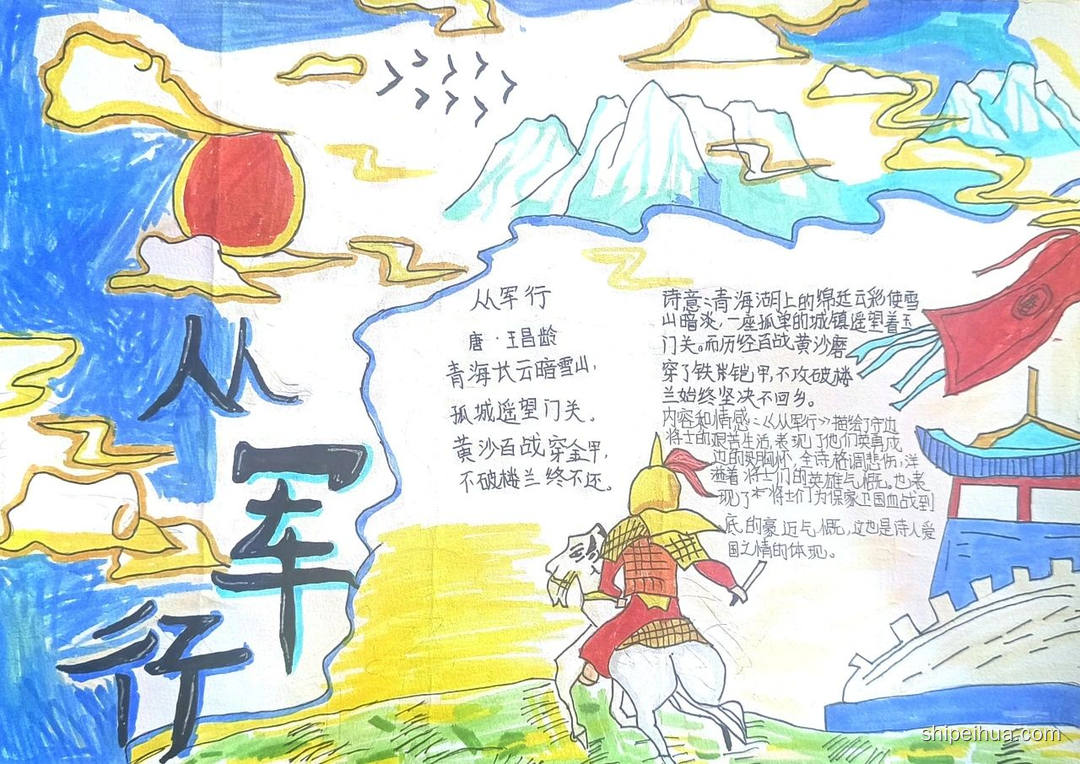 从
军
行
从军行
唐·王昌龄
青海长云暗雪山，
孤城遥望门关。
黄沙百战穿金甲，
不破楼兰终不还。
诗意：青海湖上的绵延云彩使雪
山暗淡，一座孤单的城镇遥望着玉
门关。而历经百战，黄沙磨
穿了铁铠甲，不攻破楼
兰始终坚决不回乡。
内容和情感：《从军行》描绘了守边
将士的艰苦生活，表现了他们英勇戍
边的胸怀，全诗格调悲伤，洋
溢着将士们的英雄气概。也表
现了将士们为保家卫国血战到
底的豪迈气概，这也是诗人爱
国之情的体现。
shipeihua.com